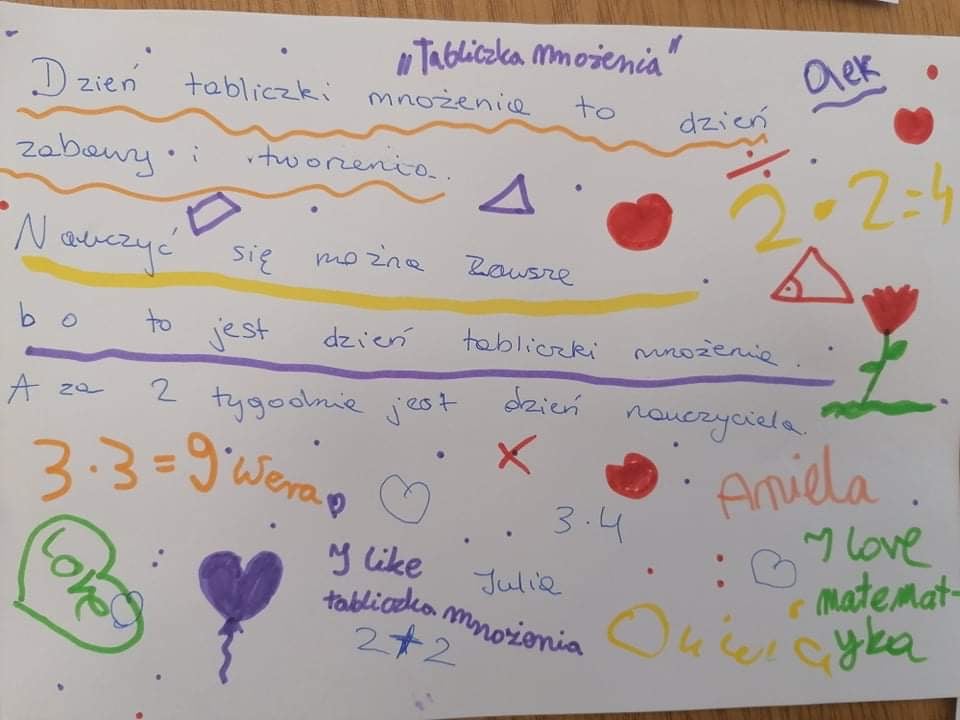 „Tabliczka mnożenia"
Olek
Dzień tabliczki mnożenia to dzień
zabawy i tworzenia.
2 · 2 = 4
Nauczyć się można zawsze
bo to jest dzień tabliczki mnożenia.
A za 2 tygodnie jest dzień nauczyciela.
3 · 3 = 9 Wera
3 · 4
Aniela
I like
tabliczka mnożenia
Julia
I love
matemat-
yka